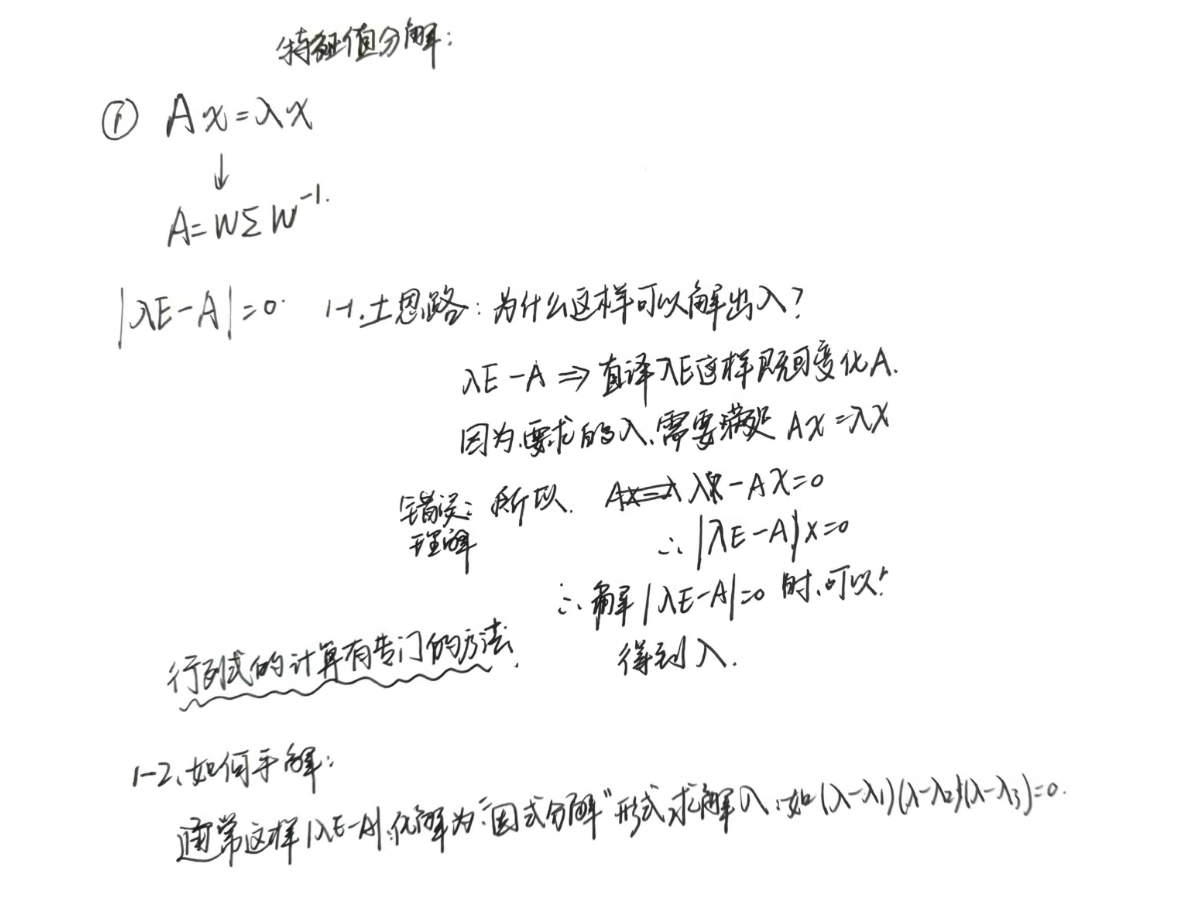 特征值分解:
① Ax=λx
↓
A=WΣW⁻¹.
|λE-A|=0. 1-1.土思路:为什么这样可以解出λ?
λE-A⇒直译λE这样既可变化A.
因为,要求的λ,需要满足 Ax=λx
错误理解:所以. λx-Ax=0
∴|λE-A|x=0
∴解|λE-A|=0 时,可以
得到λ.
行列式的计算有专门的方法.
1-2、如何手解:
通常这样|λE-A|,化解为“因式分解”形式求解λ,如(λ-λ₁)(λ-λ₂)(λ-λ₃)=0.